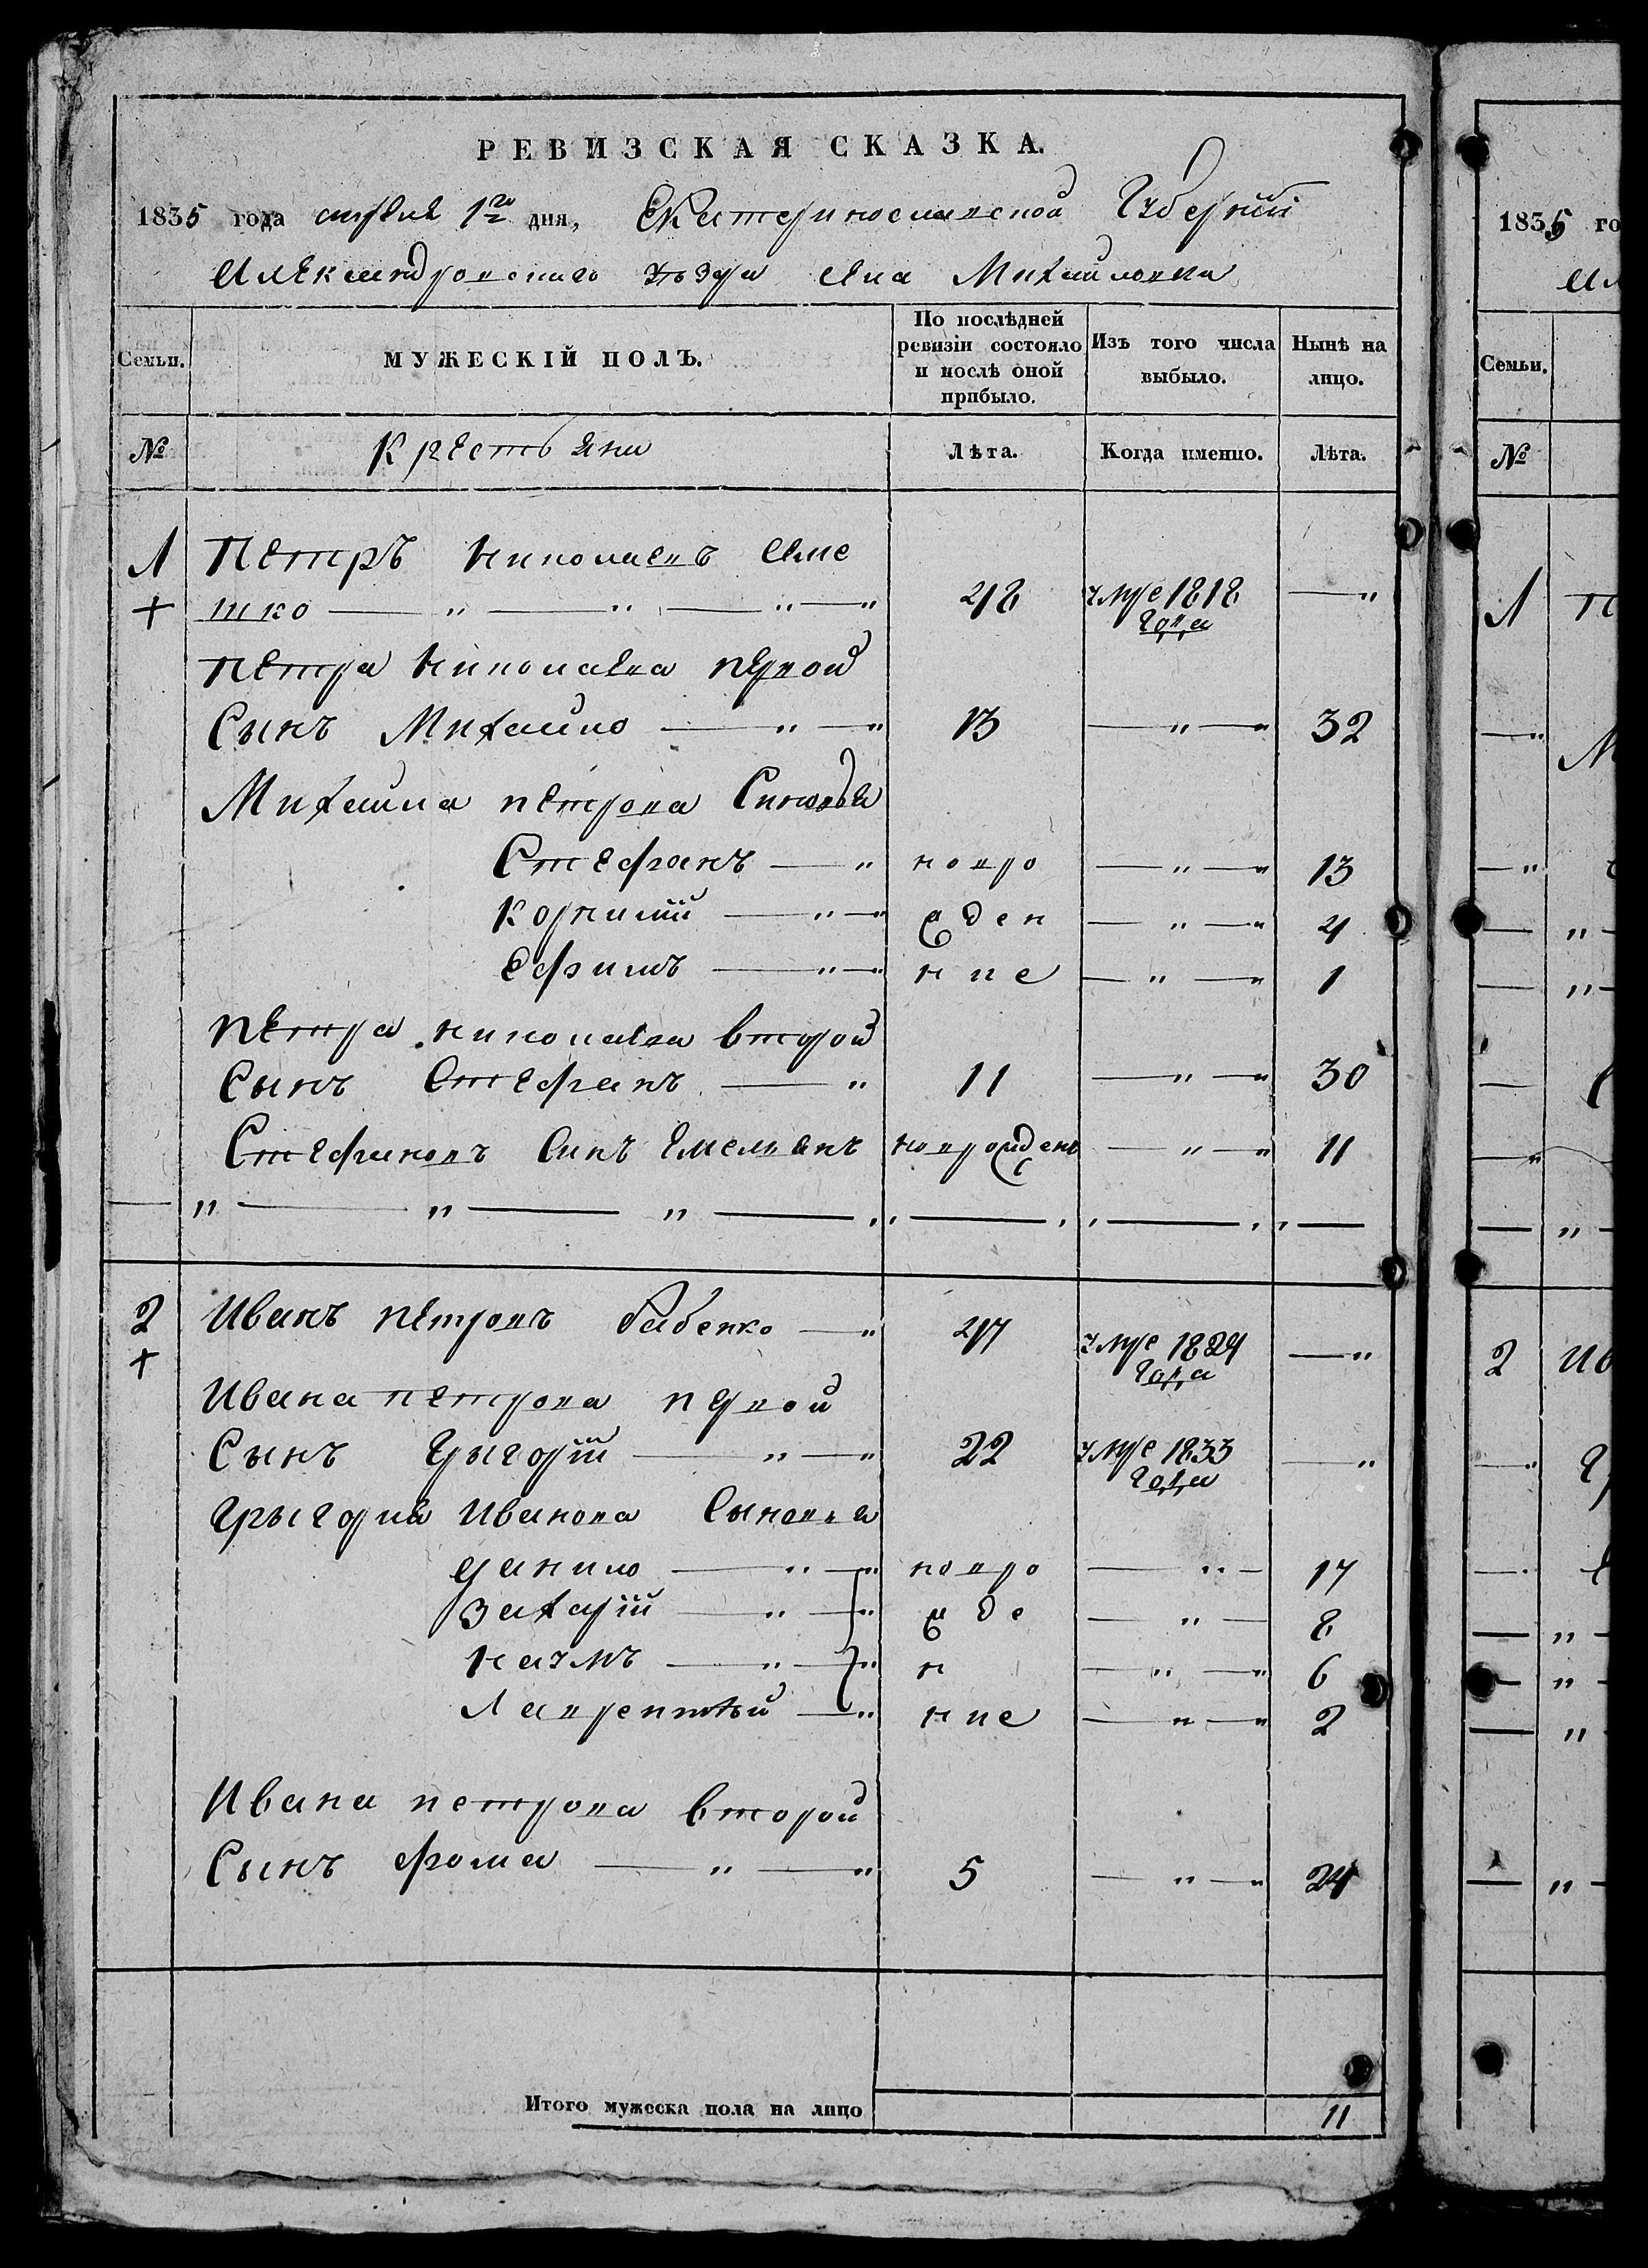 РЕВИЗСКАЯ СКАЗКА.
1835 года апреля 1го дня, Екатеринославской Губернии
Александровского уезда села Михайловки
Семьи. МУЖЕСКІЙ ПОЛЪ. По послѣдней ревизіи состояло и послѣ оной прибыло. Изъ того числа выбыло. Нынѣ на лицо.
№ Крестьяни Лѣта. Когда именно. Лѣта.
1 Петръ Николаевъ
+ шко — „ — „ — „ — „ 48 умре 1818 года — „
Петра Николаева первой
Сынъ Михайло — „ — „ 13 — „ — „ 32
Михайла Петрова Синовья
Стефанъ — „ новро — „ — „ 13
Корнилій — „ — „ жден — „ — „ 4
Ефимъ — „ — „ ние — „ — „ 1
Петра Николаева второй
Сынъ Стефанъ — „ 11 — „ — „ 30
Стефановъ Синъ Емельянъ новрожденъ — „ — „ 11
— „ — „ — „ — „ — „ „ — „ „ —
2 Иванъ Петровъ Бабенко — „ 47 умре 1824 года — „
+
Ивана Петрова первой
Сынъ Грыгорій — „ — „ 22 умре 1833 года — „
Грыгория Иванова Сыновья
Данило — „ — „ новро — „ — 17
Захарій — „ — „ жде — „ — 8
Наумъ — „ — „ н — „ — „ 6
Лаврентѣй — „ ние — „ — „ 2
Ивана Петрова второй
Сынъ Фома — „ — „ 5 — „ — „ 24
Итого мужеска пола на лицо 11
1835 го
Ал
Семьи.
№
1 П
— „ М
2 Ив
— „ Г